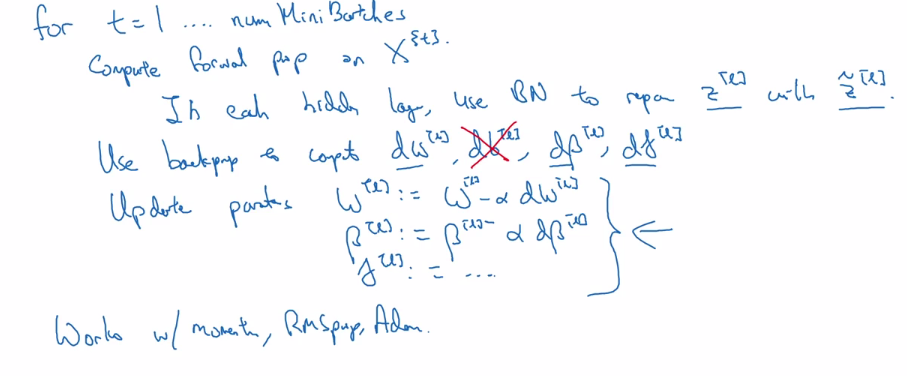 for t=1 .... num MiniBatches
Compute forward prop on X^{t}.
In each hidden layer, use BN to replace z^[l] with z̃^[l].
Use backprop to compute dw^[l], db^[l], dβ^[l], dγ^[l]
Update parameters w^[l] := w^[l] - α dw^[l]
β^[l] := β^[l] - α dβ^[l]
γ^[l] := ....
Works w/ momentum, RMSprop, Adam.